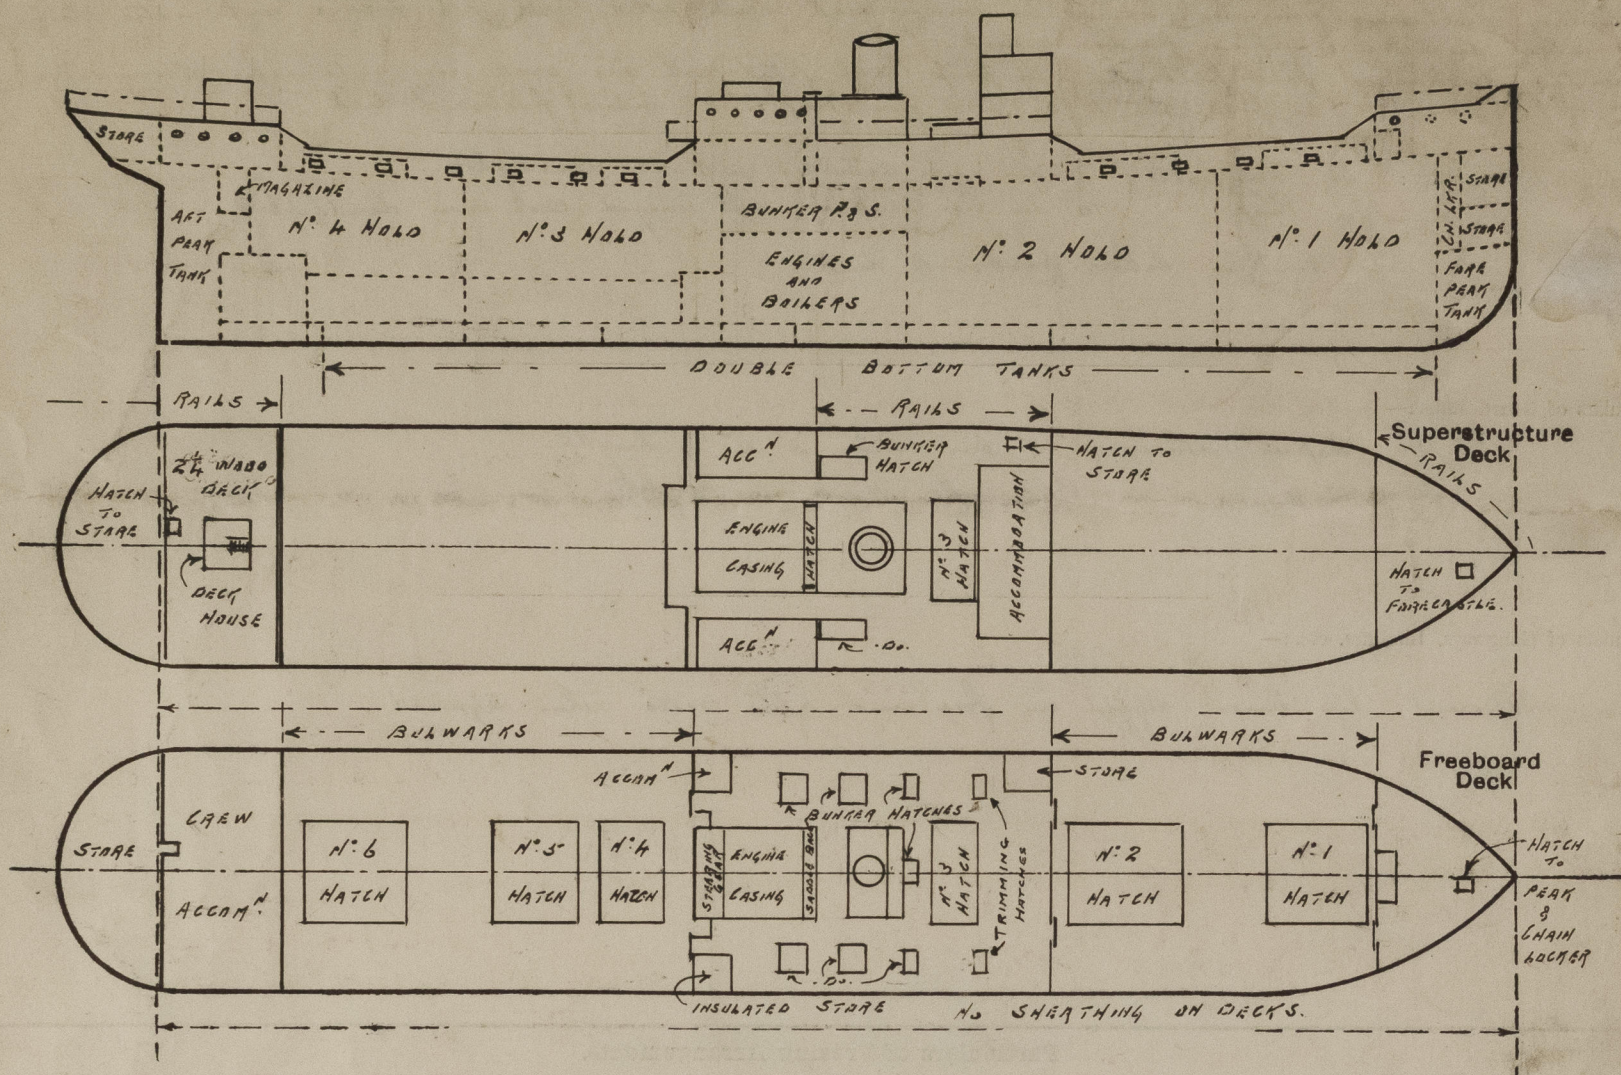 STORE
MAGAZINE
AFT
PEAK
TANK
No. 4 HOLD
No. 3 HOLD
BUNKER P. & S.
ENGINES
AND
BOILERS
No. 2 HOLD
No. 1 HOLD
CH. LKR.
STORE
STORE
FORE
PEAK
TANK
DOUBLE BOTTOM TANKS
RAILS
RAILS
Superstructure
Deck
RAILS
2¼" WOOD
DECK
HATCH
TO
STORE
DECK
HOUSE
ACCN
BUNKER
HATCH
HATCH TO
STORE
ENGINE
CASING
HATCH
No. 3
HATCH
ACCOMMODATION
ACCN
Do.
HATCH
TO
FORECASTLE.
BULWARKS
BULWARKS
Freeboard
Deck
ACCOMN
STORE
BUNKER HATCHES
CREW
ACCOMN.
STORE
No. 6
HATCH
No. 5
HATCH
No. 4
HATCH
STEERING
GEAR
ENGINE
CASING
SADDLE BACK
No. 3
HATCH
TRIMMING
HATCHES
No. 2
HATCH
No. 1
HATCH
HATCH
TO
PEAK
&
CHAIN
LOCKER
Do.
INSULATED STORE
NO SHEATHING ON DECKS.